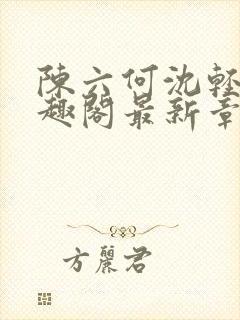 陳六何沈輕
趣閣最新章
方麗君